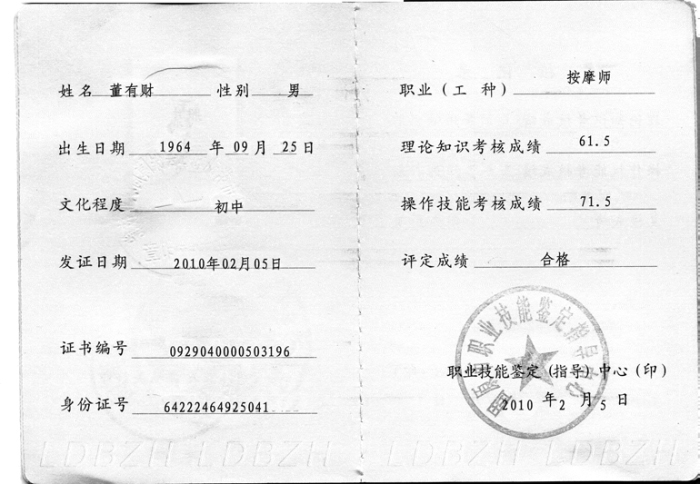 姓名 董有财 性别 男
出生日期 1964 年 09 月 25 日
文化程度 初中
发证日期 2010年02月05日
证书编号 0929040000503196
身份证号 64222464925041
职业（工 种） 按摩师
理论知识考核成绩 61.5
操作技能考核成绩 71.5
评定成绩 合格
职业技能鉴定指导中心
职业技能鉴定（指导）中心（印）
2010 年 2 月 5 日
LDBZH LDBZH LDBZH LDBZH